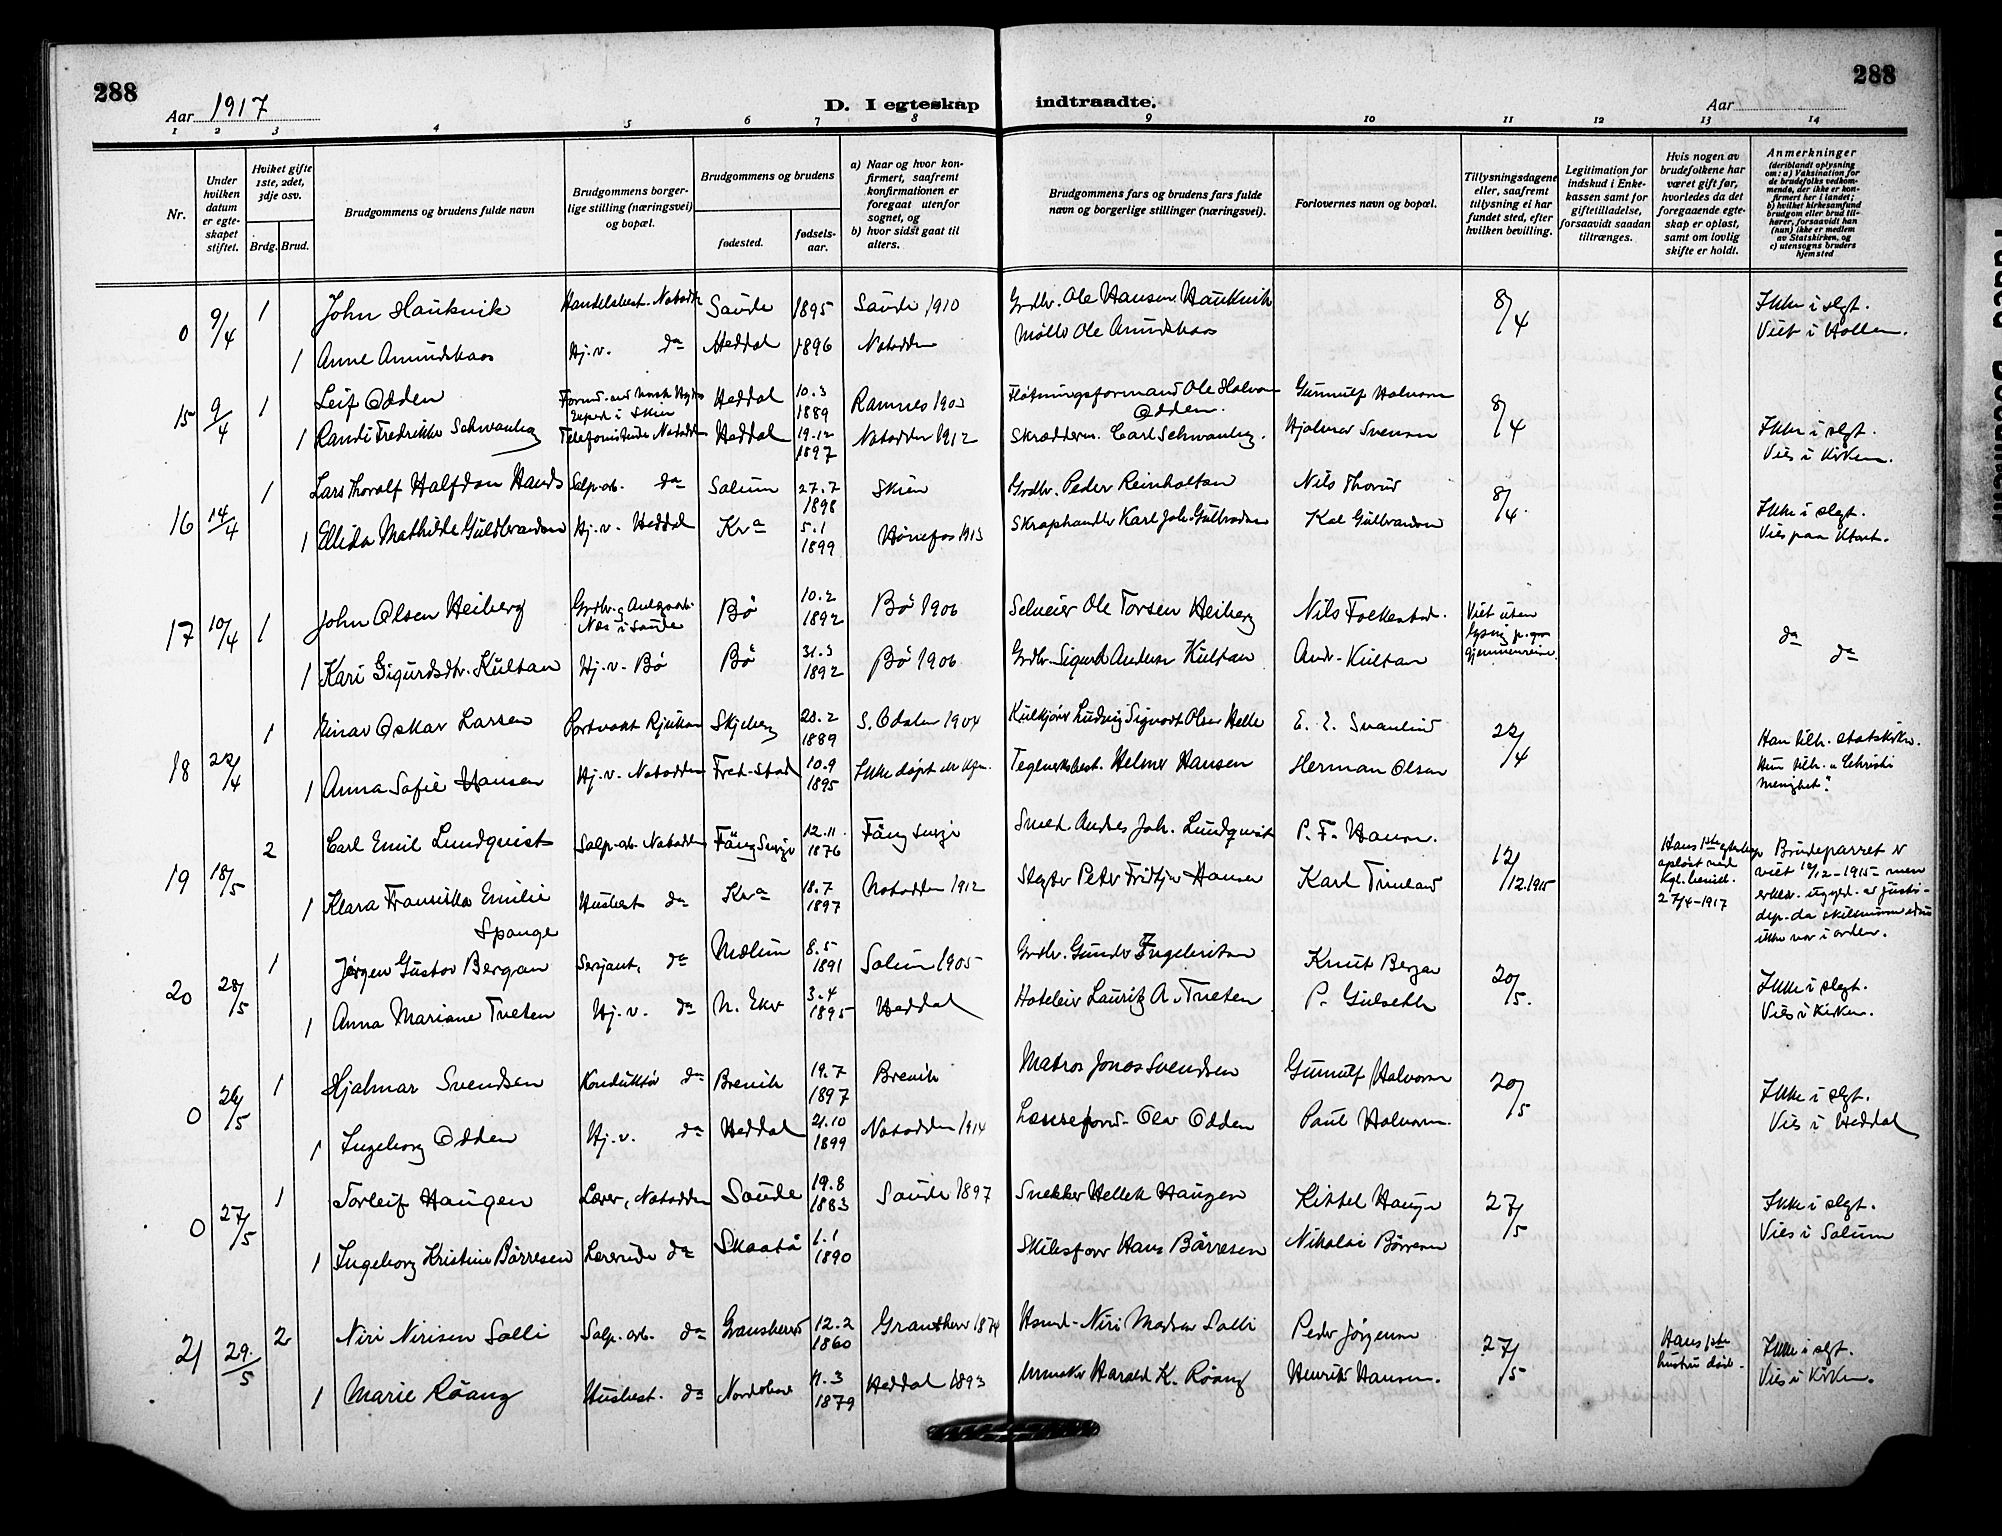 288
288
Aar 1917
D. I egteskap
indtraadte.
Aar
1 2 3 4 5 6 7 8 9 10 11 12 13 14
Nr.
Under hvilken datum er egteskapet stiftet.
Hviket gifte 1ste, 2det, 3dje osv.
Brdg. Brud.
Brudgommens og brudens fulde navn
Brudgommens borgerlige stilling (næringsvei) og bopæl.
Brudgommens og brudens
fødested.
fødselsaar.
a) Naar og hvor konfirmert, saafremt konfirmationen er foregaat utenfor sognet, og
b) hvor sidst gaat til alters.
Brudgommens fars og brudens fars fulde navn og borgerlige stillinger (næringsvei).
Forlovernes navn og bopæl.
Tillysningsdagene eller, saafremt tillysning ei har fundet sted, efter hvilken bevilling.
Legitimation for indskud i Enkekassen samt for giftetilladelse, forsaavidt saadan tiltrænges.
Hvis nogen av brudefolkene har været gift før, hvorledes da det foregaaende egteskap er opløst, samt om lovlig skifte er holdt.
Anmerkninger (deriblandt oplysning om: a) Vaksination for de brudefolks vedkommende, der ikke er konfirmert her i landet; b) hvilket kirkesamfund brudgom eller brud tilhører, forsaavidt han (hun) ikke er medlem av Statskirken, og c) utensogns bruders hjemsted
0 9/4 1 John Haukvik Handelsbest. Notodden Saude 1895 Saude 1910 Grdbr. Ole Hansen Haukvik 8/4 Ikke i slgt.
1 Anne Amundskaas Hj.v. do Heddal 1896 Notodden Møller Ole Amundskaas Viet i Hollen.
15 9/4 1 Leif Odden i Skien Heddal 10.3 1889 Ramnes 1903 Fløtningsformand Ole Halvorsen Odden. Gunnulf Halvorsen 8/4 Ikke i slgt.
1 Randi Fredrikke Schwanberg Telefonistinde Notodden Heddal 19.12 1897 Notodden 1912 Skrædderm. Carl Schwanberg. Hjalmar Svensen Vies i Kirken.
16 14/4 1 Lars Thoralf Halfdan Hands Salp.arb. do Solum 27.7 1898 Skien Grdbr. Peder Reinholtsen Nils Thorud 8/4 Ikke i slgt.
1 Ellida Mathilde Guldbrandsen Hj.v. Heddal Kra 5.1 1899 Hønefos 1913 Skraphandler Karl Joh. Gulbrandsen Kal Gulbrandsen Vies paa Ktort.
17 10/4 1 John Olsen Heiberg Nes i Saude Bø 10.2 1892 Bø 1906 Selveier Ole Torsen Heiberg Nils Folkestad. Viet uten lysning do do
1 Kari Sigurdsdtr. Kultan Hj.v. Bø Bø 31.3 1892 Bø 1906 Grdbr. Sigurd Andersen Kultan Andr. Kultan
18 22/4 1 Einar Oskar Larsen Portvakt Rjukan Skjeberg 20.2 1889 S. Odalen 1904 Kulkjører Ludvig Sigvart Olsen Helle E. E. Svanlind 22/4 Han tilh. statskirken.
1 Anna Sofie Hansen Hj.v. Notodden Fred.stad 10.9 1895 Ikke døpt Teglverksbest. Helmer Hansen Herman Olsen Hun tilh. "Christi Menighet".
19 18/5 2 Carl Emil Lundquist Salp.arb. Notodden Fäng Sverige 12.11. 1876 Fäng Sverige Smed Andres Joh. Lundquist P. F. Hansen. 12/12.1915 Hans 1ste egteskap opløst ved Kgl. bevild. 27/4-1917 Brudeparret er viet 12/12-1915 men ikke var i orden.
1 Klara Fransiska Emilie Spange Husbest do Kra 18.7 1897 Notodden 1912 Slagter Peter Fridtjov Hansen Karl
20 28/5 1 Jørgen Gustav Bergan Sersjant, do Mælum 8.5 1891 Solum 1905 Grdbr. Gunder Ingebretsen Knut Bergan 20/5. Ikke i slgt.
1 Anna Mariane Tveten Hj.v. do N. Eker 3.4 1895 Heddal Hoteleier Lauritz A. Tveten P. Gulseth Vies i Kirken.
0 26/5 1 Hjalmar Svendsen Konduktør do Brevik 19.7 1897 Brevik Matros Jonas Svendsen Gunnulf Halvorsen 20/5 Ikke i slgt.
1 Ingeborg Odden Hj.v. do Heddal 21.10 1899 Notodden 1914 Lænseform. Olav Odden Paul Halvorsen. Vies i Heddal
0 27/5 1 Torleif Haugen Lærer, Notodden Saude 19.8 1883 Saude 1897 Snekker Hellek Haugen Kittel Haugen 27/5 Ikke i slgt.
1 Ingeborg Kristine Børresen Lærerinde do Skaatø 1.1 1890 Skibsfører Hans Børresen Nikolai Børresen Vies i Solum
21 29/5 2 Niri Nirisen Solli Salp.arb. do Gransherred 12.2 1860 Gransherred 1874 Husmd. Niri Madsen Solli Peder Jørgensen 27/5 Hans 1ste hustru død. Ikke i slgt.
1 Marie Røang Husbest. do 11.3 1879 Heddal 1893 Harald K. Røang Henrik Hansen. Vies i Kirken.